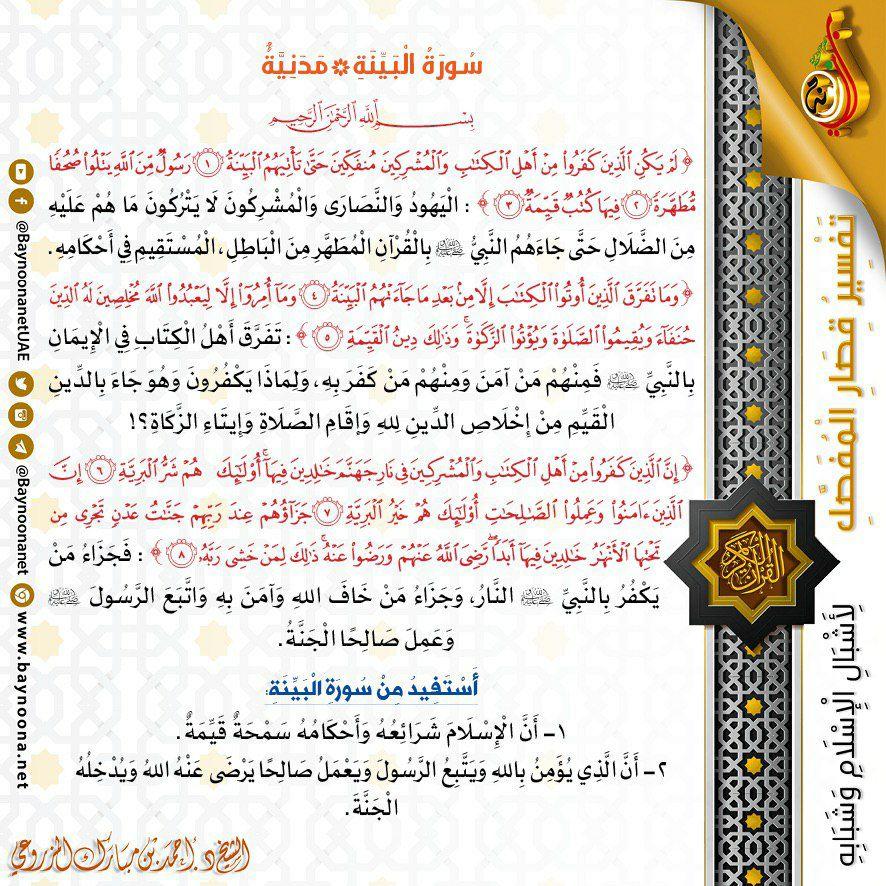 سُورَةُ الْبَيِّنَةِ مَدَنِيَّةٌ
بِسْمِ اللَّهِ الرَّحْمَٰنِ الرَّحِيمِ
﴿ لَمْ يَكُنِ ٱلَّذِينَ كَفَرُوا۟ مِنْ أَهْلِ ٱلْكِتَٰبِ وَٱلْمُشْرِكِينَ مُنفَكِّينَ حَتَّىٰ تَأْتِيَهُمُ ٱلْبَيِّنَةُ ﴿١﴾ رَسُولٌ مِّنَ ٱللَّهِ يَتْلُوا۟ صُحُفًا
مُّطَهَّرَةً ﴿٢﴾ فِيهَا كُتُبٌ قَيِّمَةٌ ﴿٣﴾ ﴾ : الْيَهُودُ وَالنَّصَارَى وَالْمُشْرِكُونَ لَا يَتْرُكُونَ مَا هُمْ عَلَيْهِ
مِنَ الضَّلَالِ حَتَّى جَاءَهُمُ النَّبِيُّ ﷺ بِالْقُرْآنِ الْمُطَهَّرِ مِنَ الْبَاطِلِ، الْمُسْتَقِيمِ فِي أَحْكَامِهِ.
﴿ وَمَا تَفَرَّقَ ٱلَّذِينَ أُوتُوا۟ ٱلْكِتَٰبَ إِلَّا مِنۢ بَعْدِ مَا جَآءَتْهُمُ ٱلْبَيِّنَةُ ﴿٤﴾ وَمَآ أُمِرُوٓا۟ إِلَّا لِيَعْبُدُوا۟ ٱللَّهَ مُخْلِصِينَ لَهُ ٱلدِّينَ
حُنَفَآءَ وَيُقِيمُوا۟ ٱلصَّلَوٰةَ وَيُؤْتُوا۟ ٱلزَّكَوٰةَ ۚ وَذَٰلِكَ دِينُ ٱلْقَيِّمَةِ ﴿٥﴾ ﴾ : تَفَرَّقَ أَهْلُ الْكِتَابِ فِي الْإِيمَانِ
بِالنَّبِيِّ ﷺ فَمِنْهُمْ مَنْ آمَنَ وَمِنْهُمْ مَنْ كَفَرَ بِهِ، وَلِمَاذَا يَكْفُرُونَ وَهُوَ جَاءَ بِالدِّينِ
الْقَيِّمِ مِنْ إِخْلَاصِ الدِّينِ لِلهِ وَإِقَامِ الصَّلَاةِ وَإِيتَاءِ الزَّكَاةِ؟!
﴿ إِنَّ ٱلَّذِينَ كَفَرُوا۟ مِنْ أَهْلِ ٱلْكِتَٰبِ وَٱلْمُشْرِكِينَ فِى نَارِ جَهَنَّمَ خَٰلِدِينَ فِيهَآ ۚ أُو۟لَٰٓئِكَ هُمْ شَرُّ ٱلْبَرِيَّةِ ﴿٦﴾ إِنَّ
ٱلَّذِينَ ءَامَنُوا۟ وَعَمِلُوا۟ ٱلصَّٰلِحَٰتِ أُو۟لَٰٓئِكَ هُمْ خَيْرُ ٱلْبَرِيَّةِ ﴿٧﴾ جَزَآؤُهُمْ عِندَ رَبِّهِمْ جَنَّٰتُ عَدْنٍ تَجْرِى مِن
تَحْتِهَا ٱلْأَنْهَٰرُ خَٰلِدِينَ فِيهَآ أَبَدًا ۖ رَّضِىَ ٱللَّهُ عَنْهُمْ وَرَضُوا۟ عَنْهُ ۚ ذَٰلِكَ لِمَنْ خَشِىَ رَبَّهُۥ ﴿٨﴾ ﴾ : فَجَزَاءُ مَنْ
يَكْفُرُ بِالنَّبِيِّ ﷺ النَّارُ، وَجَزَاءُ مَنْ خَافَ اللهَ وَآمَنَ بِهِ وَاتَّبَعَ الرَّسُولَ ﷺ
وَعَمِلَ صَالِحًا الْجَنَّةُ.
أَسْتَفِيدُ مِنْ سُورَةِ الْبَيِّنَةِ:
١- أَنَّ الْإِسْلَامَ شَرَائِعُهُ وَأَحْكَامُهُ سَمْحَةٌ قَيِّمَةٌ.
٢- أَنَّ الَّذِي يُؤْمِنُ بِاللهِ وَيَتَّبِعُ الرَّسُولَ وَيَعْمَلُ صَالِحًا يَرْضَى عَنْهُ اللهُ وَيُدْخِلُهُ
الْجَنَّةَ.
الشيخ د. أحمد بن مبارك المزروعي
تَفْسِيرُ قِصَارِ الْمُفَصَّلِ
لِأَشْبَالِ الْإِسْلَامِ وَشَبَابِهِ
القرآن الكريم
@BaynoonanetUAE
@Baynoonanet
www.baynoona.net